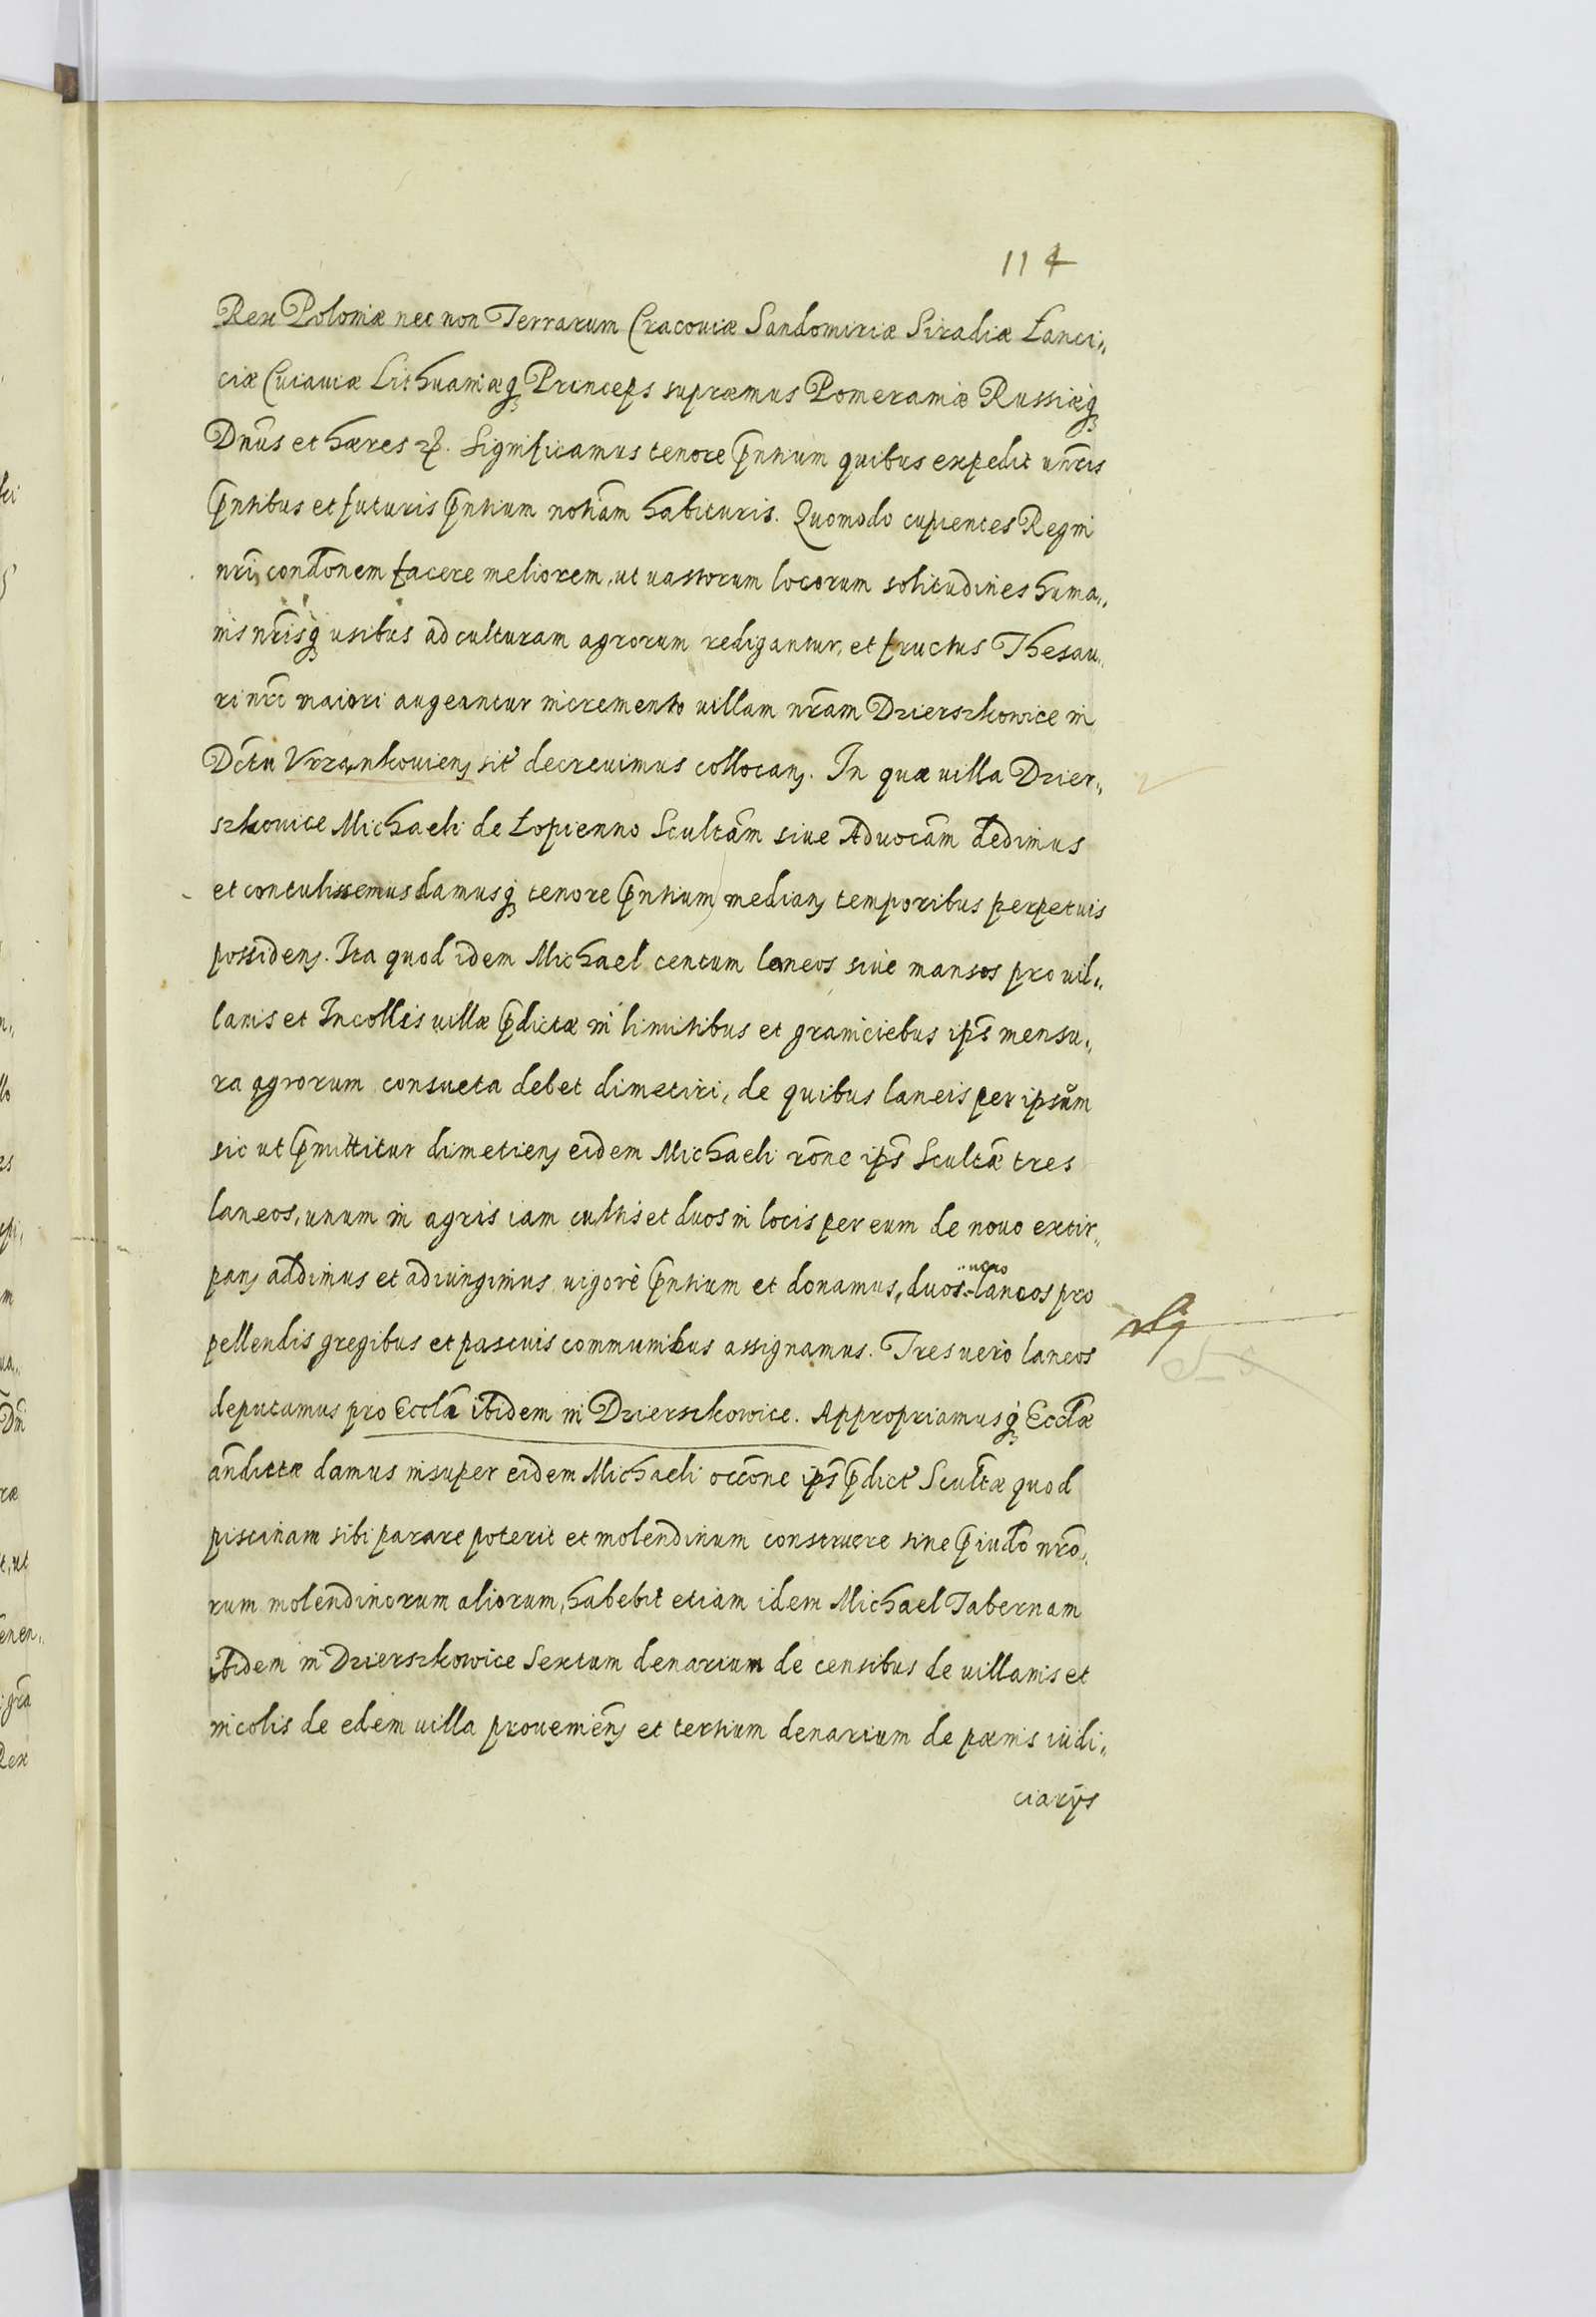 114
Rex Poloniæ nec non Terrarum Cracouiæ Sandomiriæ Siradiæ Lanci„
ciæ Cuiauiæ Lithuaniæq́ Princeps supræmus Pomeraniæ Russiæq́
Dnūs et hæres &. Significamus tenore p̄ntium quibus expedit vnr̄is
p̄ntibus et futuris p̄ntium notiām habituris. Quomodo cupientes Regni
nrī condōnem facere meliorem, ut uastorum locorum solitudines huma„
nis nrīsq́ usibus ad culturam agrorum redigantur, et fructus Thesau„
ri nrī maiori augeantur incremento uillam nrām Dzierszkowice in
Dc̄tu Vrzankouien, sit̄ decreuimus collocan,. In qua uilla Dzier„
szkouice Michaeli de Łopienno Scultām siue Aduocām dedimus
et contulissemus damusq́ tenore p̄ntium median, temporibus perpetuis
possiden,. Ita quod idem Michael centum laneos siue mansos pro uil„
lanis et Incollis uillæ p̄dictæ in limitibus et graniciebus ips̄ mensu„
ra agrorum consueta debet dimetiri, de quibus laneis per ipsum
sic ut p̄mittitur dimetien, eidem Michaeli rōne ips̄ Scultǣ tres
laneos, unum in agris iam cultis et duos in locis per eum de nouo extir„
pan, addimus et adiungimus uigore p̄ntium et donamus, duos uero laneos pro
pellendis gregibus et pascuis communibus assignamus. Tres uero laneos
deputamus pro Ecclā ibidem in Dzierszkowice. Appropriamusq́ Ecclǣ
an̄dictæ damus insuper eidem Michaeli occ̄one ips̄ p̄dict̄ Scultǣ quod
piscinam sibi parare poterit et molendinum construere sine p̄iudō nrō„
rum molendinorum aliorum, habebit etiam idem Michael Tabernam
ibidem in Dzierszkowice Sextum denarium de censibus de uillanis et
incolis de edem uilla prouenien̄, et tertium denarium de pænis iudi„
ciarÿs